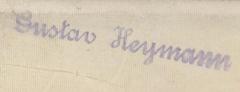 Gustav Heymann